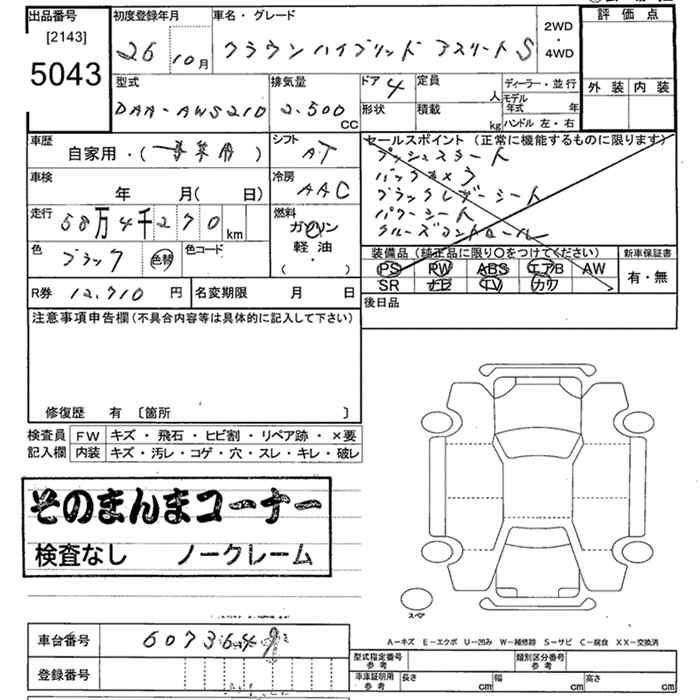 出品番号
[2143]
5043
初度登録年月
26 10月
車名・グレード
クラウンハイブリッド アスリートS
2WD
・
4WD
評価点
外装 内装
型式
DAA-AWS210
排気量
2.500
CC
ドア 4
定員
人
形状
積載
kg
ディーラー・並行
モデル年式 年
ハンドル 左・右
車歴
自家用・(事業用)
シフト
AT
車検
年 月(日)
冷房
AAC
走行
58万4千270km
燃料
ガソリン
軽油
(・)
色
ブラック 色替
色コード
R券 12,710円
名変期限 月 日
セールスポイント(正常に機能するものに限ります)
プッシュスタート
バックカメラ
ブラックレザーシート
パワーシート
クルーズコントロール
装備品(純正品に限り〇をつけてください)
PS PW ABS エアB AW
SR ナビ TV カワ
新車保証書
有・無
後日品
注意事項申告欄(不具合内容等は具体的に記入して下さい)
修復歴 有 〔箇所 〕
検査員記入欄
FW キズ・飛石・ヒビ割・リペア跡・×要
内装 キズ・汚レ・コゲ・穴・スレ・キレ・破レ
そのまんまコーナー
検査なし ノークレーム
スペア
A−キズ E−エクボ U−凹み W−補修跡 S−サビ C−腐食 XX−交換済
車台番号 6073649
登録番号
型式指定番号
参考
類別区分番号
参考
車庫証明用
参考
長さ cm
幅 cm
高さ cm